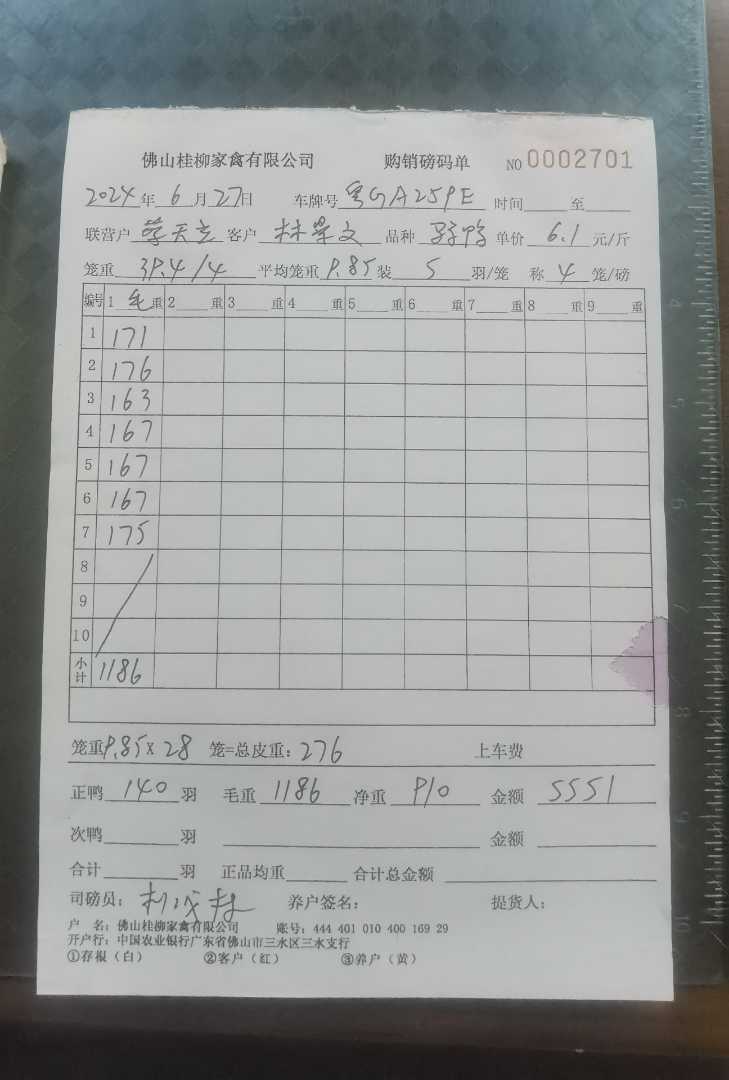 佛山桂柳家禽有限公司 购销磅码单 NO 0002701
2024年 6 月 27日 车牌号 粤GA259E 时间 至
联营户 客户 林 文 品种 鸭 单价 6.1 元/斤
笼重 39.4/4 平均笼重 9.85 装 5 羽/笼 称 4 笼/磅
编号 1 毛 重 2 重 3 重 4 重 5 重 6 重 7 重 8 重 9 重
1 171
2 176
3 163
4 167
5 167
6 167
7 175
8
9
10
小计 1186
笼重9.85X 28 笼=总皮重:276 上车费
正鸭 140 羽 毛重 1186 净重 910 金额 5551
次鸭 羽 金额
合计 羽 正品均重 合计总金额
司磅员: 养户签名: 提货人:
户 名:佛山桂柳家禽有限公司 账号:444 401 010 400 169 29
开户行:中国农业银行广东省佛山市三水区三水支行
①存根(白) ②客户(红) ③养户(黄)